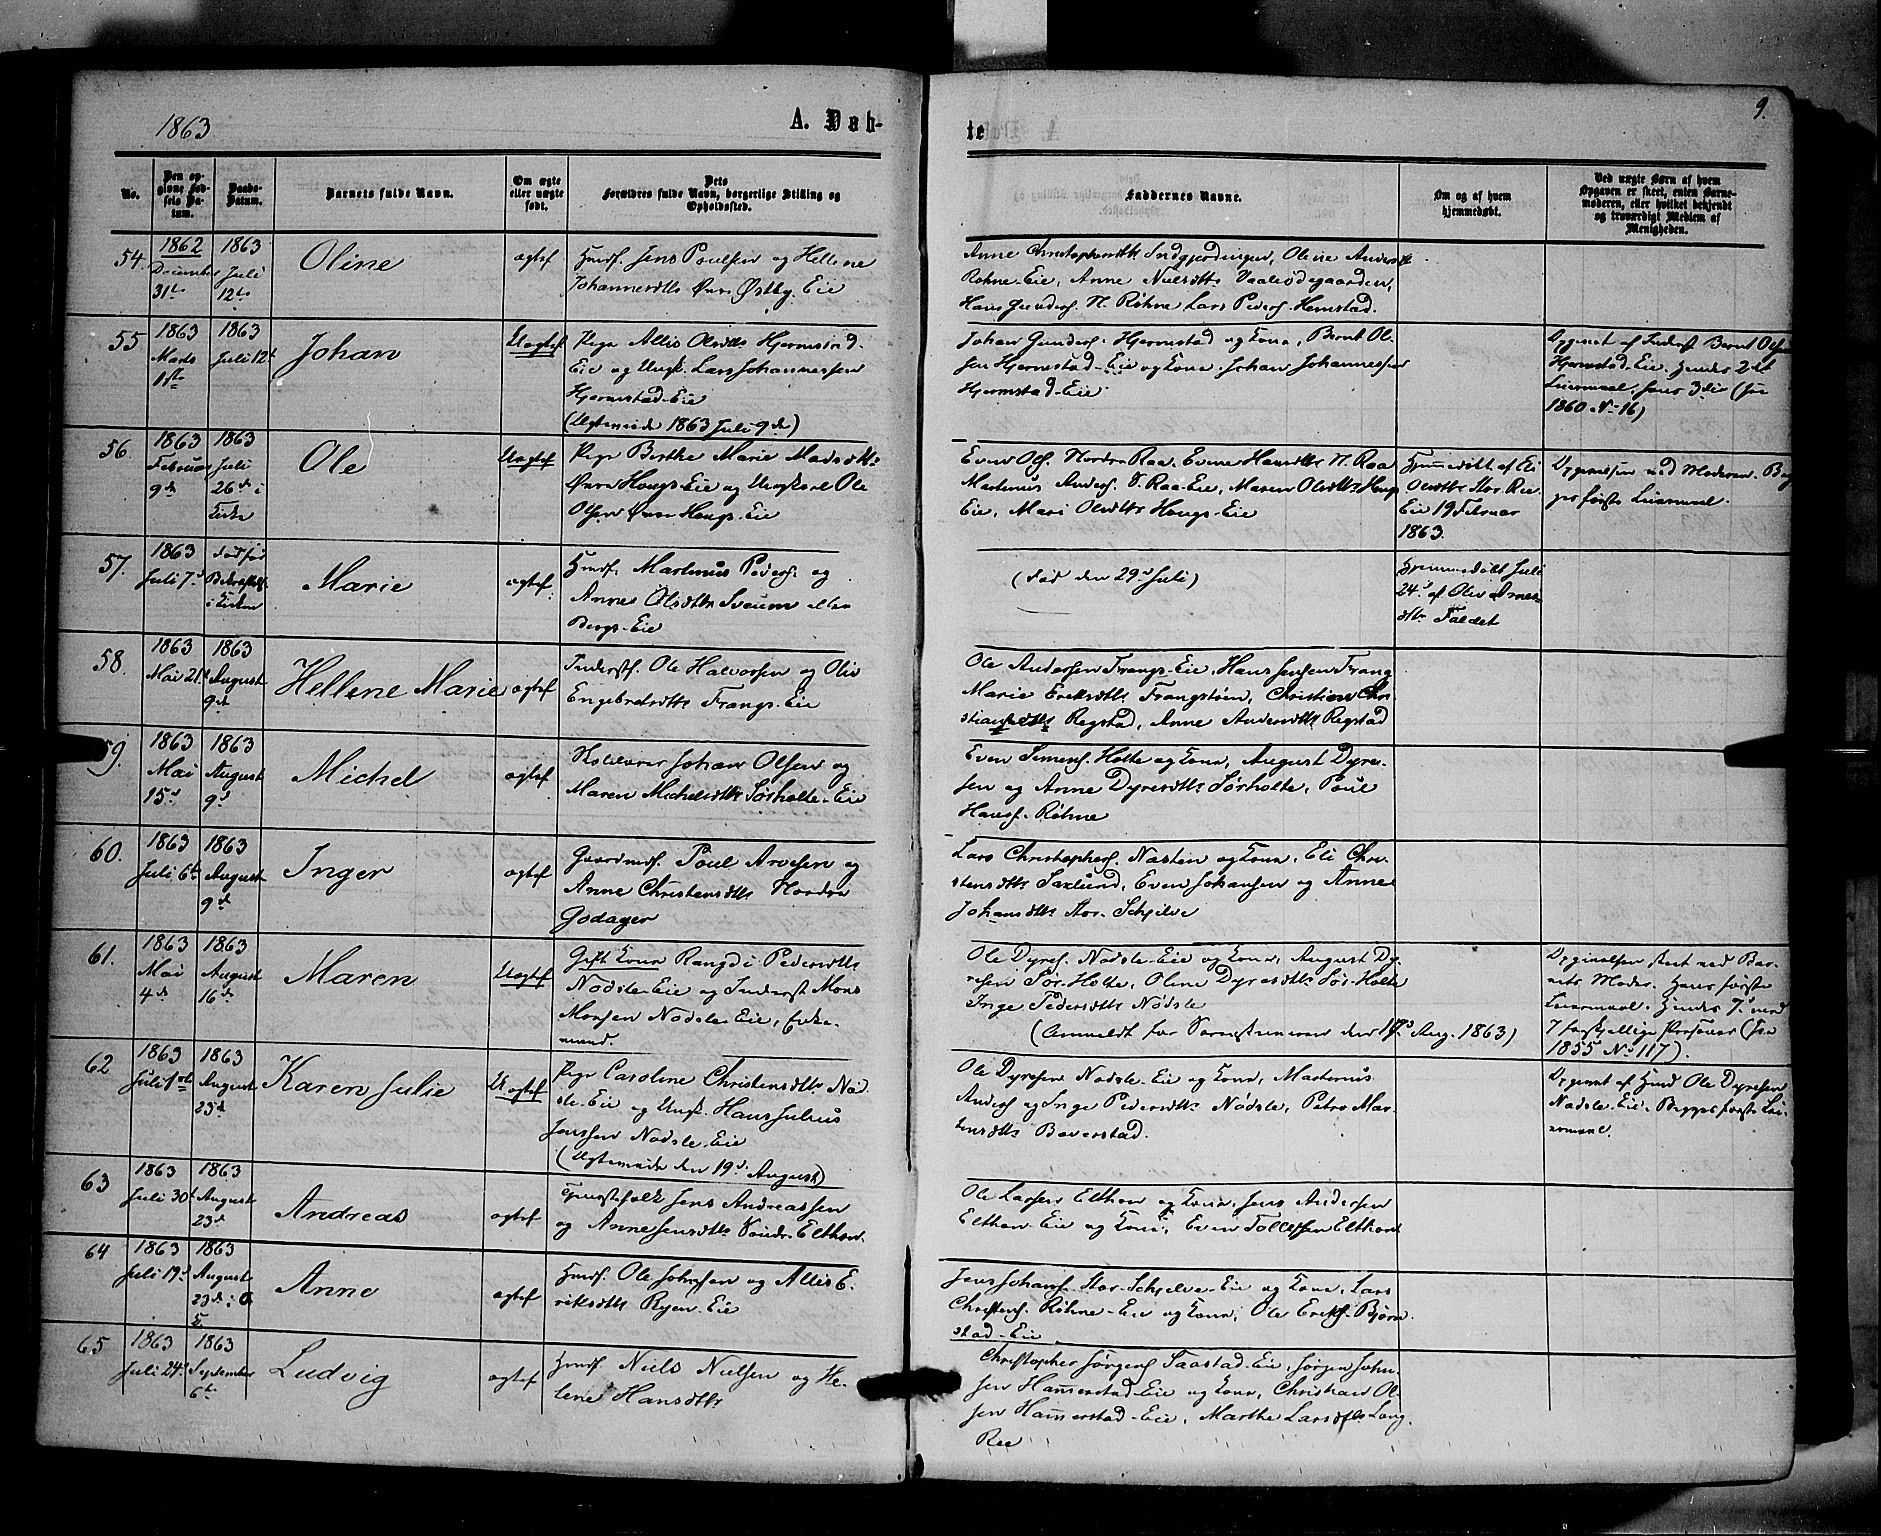 1863
A. Døb-
te
9.
No.
Den opgivne Fødsels Datum.
Daabs-Datum.
Barnets fulde Navn.
Om ægte eller uægte født.
Dets Forældres fulde Navn, borgerlige Stilling og Opholdssted.
Faddernes Navne.
Om og af hvem hjemmedøbt.
Ved uægte Børn af hvem Opgaven er skeet, enten Barnemoderen, eller hvilket bekjendt og troværdigt Medlem af Menigheden.
54.
1862
December
31te
1863
Juli
12te
Oline
ægtef
Huusf. Jens Poulsen og Hellene
Johannesdtr Øvre Østby. Eie
Anne Christophersdtr Indgjerdingen, Oline Andersdtr
Røhne-Eie, Anne Nielsdtr Vaaleødegaarden,
Hans Gunders. N. Røhne Lars Peders. Hemstad.
55
1863
Marts
1ste
1863
Juli 12te
Johan
Uægtef
Pige Allis Olsdtr Hjermstad
Eie og Ungk. Lars Johannessen
Hjermstad-Eie
(Ægteviede 1863 Juli 9de)
Johan Gunders. Hjermstad og Kone, Bernt Ol-
sen Hjermstad-Eie og Kone. Johan Johannessen
Hjermstad-Eie
Opgivet af Inderst Bernt Olsen
Hjermstad-Eie. Hendes 2det
Leiermaal, hans 3die (see
1860 No 16)
56
1863
Februar
9de
1863
Juli
26de i
Kirke
Ole
Uægtef
Pige Berthe Marie Madsdtr
Øvre Hougs-Eie og Ungkarl Ole
Olsen Øvre Hougs-Eie
Even Ols. Nordre Raa. Evine Hansdtr N. Raa
Martinus Anders. S. Raa-Eie, Maren Olsdtr Hougs
Eie, Mari Olsdtr Hougs-Eie
Hjemmedøbt af Eli
Olsdtr Stor. Ree
Eie 19 Februar
1863.
Opgivelsen ved Moderen. Beg-
ges første Leiermaal.
57.
1863
Juli 7de
død før
Bekræftelse
i Kirken
Marie
ægtef.
Huusf. Martinus Peders. og
Anne Olsdtr Sveum eller
Bergs-Eie
(død den 29de Juli)
Hjemmedøbt Juli
24de af Oliv Arnes-
dtr Faldet
58.
1863
Mai 21de
1863
August
9de
Hellene Marie
ægtef
Inderstf. Ole Halvorsen og Oliv
Engebretsdtr Frangs-Eie
Ole Andersen Frangs-Eie, Hans Jensen Frang
Marie Eriksdtr Frangstøen, Christiane Chri-
stiansdtr Regstad, Anne Andersdtr Regstad
59.
1863
Mai
15de
1863
August
9de
Michel
ægtef
Johan Olsen og
Maren Michelsdtr Sørholte-Eie
Even Simens. Holte og Kone, August Dyre-
sen og Anne Dyresdtr Sørholte, Poul
Hansf. Røhne
60.
1863
Juli 6te
1863
August
9de
Inger
ægtef
Gaardmf. Poul Arvesen og
Anne Christensdtr Nordre
Godager
Lars Christophers. Næstin og Kone, Eli Chri-
stensdtr Saxlund, Even Johansen og Anne
Johansdtr Stor-Schjelve
61.
1863
Mai
4de
1863
August
16de
Maren
Uægtef
Gift Kone Rangdi Pedersdtr
Nødsle-Eie og Inderst Mons
Monsen Nødsle-Eie, Enke-
mand.
Ole Dyres. Nødsle-Eie og Kone, August Dy-
resen Sør-Holte, Oline Dyresdtr Sør-Holte
Inge Pedersdtr Nødsle
(Anmeldt for Sorenskriveren den 17de Aug. 1863)
Opgivelsen skeet ved Bar-
nets Moder. Hans første
Leiermaal. Hendes 7de med
7 forskjellige Personer (see
1855 No 117).
62
1863
Juli 1ste
1863
August
23de
Karen Julie
Uægtef
Pige Caroline Christensdtr Nød-
sle-Eie og Ungk. Hans Julius
Jenssen Nødsle-Eie
(Ægteviede den 19de August)
Ole Dyresen Nødsle-Eie og Kone, Martinus
Anders og Inge Pedersdtr Nødsle, Petra Mar-
tinsdtr Beverstad.
Opgivet af Huusf. Ole Dyresen
Nødsle-Eie. Begges første Lei-
ermaal.
63
1863
Juli 30te
1863
August
23de
Andreas
ægtef
Tjenestefolk Jens Andreassen
og Anne Jensdtr Søndre Elthon.
Ole Larsen Elthon og Kone, Jens Andersen
Elthon-Eie og Kone, Even Tollefsen Elthon
64
1863
Juli 19de
1863
August
23de i
Anne
ægtef
Huusf. Ole Johnsen og Allis E-
riksdtr Ryen-Eie
Jens Johans. Stor-Schjelve-Eie og Kone, Lars
Christens. Røhne-Eie og Kone, Ole Eriks. Bjørn-
stad-Eie
65
1863
Juli 24de
1863
September
6te
Ludvig
ægtef
Huusf. Niels Nielsen og He-
lene Hansdtr
Christopher Jørgens Taastad-Eie, Jørgen John-
sen Hammerstad-Eie og Kone, Christian Ol-
sen Hammerstad-Eie, Marthe Larsdtr Lang-
Ree